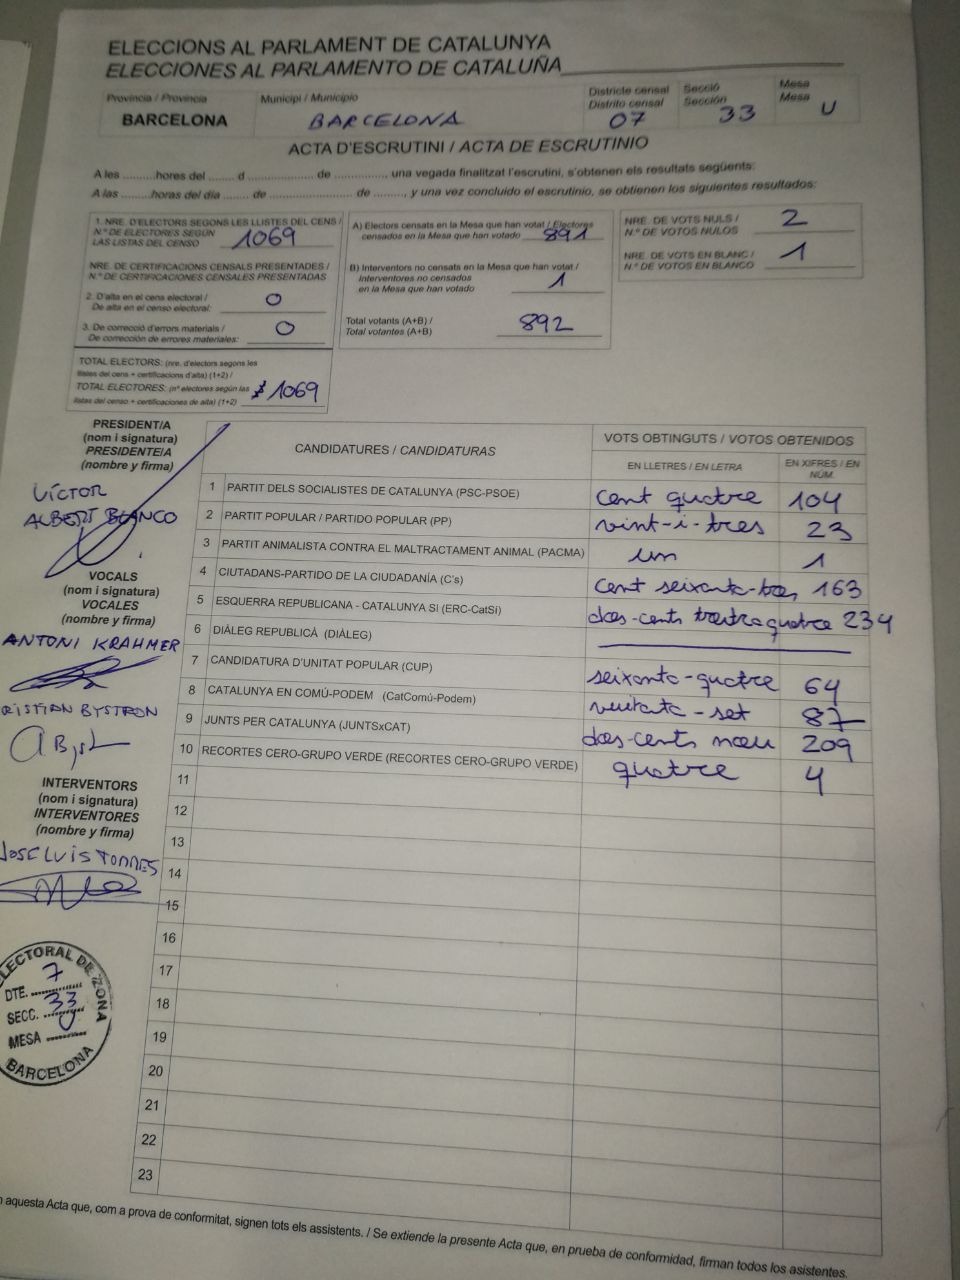 ELECCIONS AL PARLAMENT DE CATALUNYA
ELECCIONES AL PARLAMENTO DE CATALUÑA
Província / Provincia
BARCELONA
Municipi / Municipio
BARCELONA
Districte censal
Distrito censal
07
Secció
Sección
33
Mesa
Mesa
U
ACTA D'ESCRUTINI / ACTA DE ESCRUTINIO
A les ......... hores del ....... d ................. de ............., una vegada finalitzat l'escrutini, s'obtenen els resultats següents:
A las ......... horas del día ....... de ....................... de ........, y una vez concluido el escrutinio, se obtienen los siguientes resultados:
1. NRE. D'ELECTORS SEGONS LES LLISTES DEL CENS /
N.º DE ELECTORES SEGÚN
LAS LISTAS DEL CENSO
1069
NRE. DE CERTIFICACIONS CENSALS PRESENTADES /
N.º DE CERTIFICACIONES CENSALES PRESENTADAS
2. D'alta en el cens electoral /
De alta en el censo electoral:
0
3. De correcció d'errors materials /
De corrección de errores materiales:
0
TOTAL ELECTORS: (nre. d'electors segons les
llistes del cens + certificacions d'alta) (1+2) /
TOTAL ELECTORES: (nº electores según las
listas del censo + certificaciones de alta) (1+2)
1069
A) Electors censats en la Mesa que han votat / Electores
censados en la Mesa que han votado
891
B) Interventors no censats en la Mesa que han votat /
Interventores no censados
en la Mesa que han votado
1
Total votants (A+B) /
Total votantes (A+B)
892
NRE. DE VOTS NULS /
N.º DE VOTOS NULOS
2
NRE. DE VOTS EN BLANC /
N.º DE VOTOS EN BLANCO
1
PRESIDENT/A
(nom i signatura)
PRESIDENTE/A
(nombre y firma)
VÍCTOR
ALBERT BLANCO
VOCALS
(nom i signatura)
VOCALES
(nombre y firma)
ANTONI KRAHMER
RISTIAN BYSTRON
INTERVENTORS
(nom i signatura)
INTERVENTORES
(nombre y firma)
JOSE LUIS TORRES
LECTORAL DE ZONA
DTE. 7
SECC. 33
MESA U
BARCELONA
CANDIDATURES / CANDIDATURAS
VOTS OBTINGUTS / VOTOS OBTENIDOS
EN LLETRES / EN LETRA
EN XIFRES / EN
NÚM.
1 PARTIT DELS SOCIALISTES DE CATALUNYA (PSC-PSOE) cent quatre 104
2 PARTIT POPULAR / PARTIDO POPULAR (PP) vint-i-tres 23
3 PARTIT ANIMALISTA CONTRA EL MALTRACTAMENT ANIMAL (PACMA) un 1
4 CIUTADANS-PARTIDO DE LA CIUDADANÍA (C's) cent seixanta-tres 163
5 ESQUERRA REPUBLICANA - CATALUNYA SÍ (ERC-CatSí) dos-cents trenta quatre 234
6 DIÀLEG REPUBLICÀ (DIÀLEG)
7 CANDIDATURA D'UNITAT POPULAR (CUP) seixanta-quatre 64
8 CATALUNYA EN COMÚ-PODEM (CatComú-Podem) vuitanta-set 87
9 JUNTS PER CATALUNYA (JUNTSxCAT) dos-cents nou 209
10 RECORTES CERO-GRUPO VERDE (RECORTES CERO-GRUPO VERDE) quatre 4
11
12
13
14
15
16
17
18
19
20
21
22
23
aquesta Acta que, com a prova de conformitat, signen tots els assistents. / Se extiende la presente Acta que, en prueba de conformidad, firman todos los asistentes.